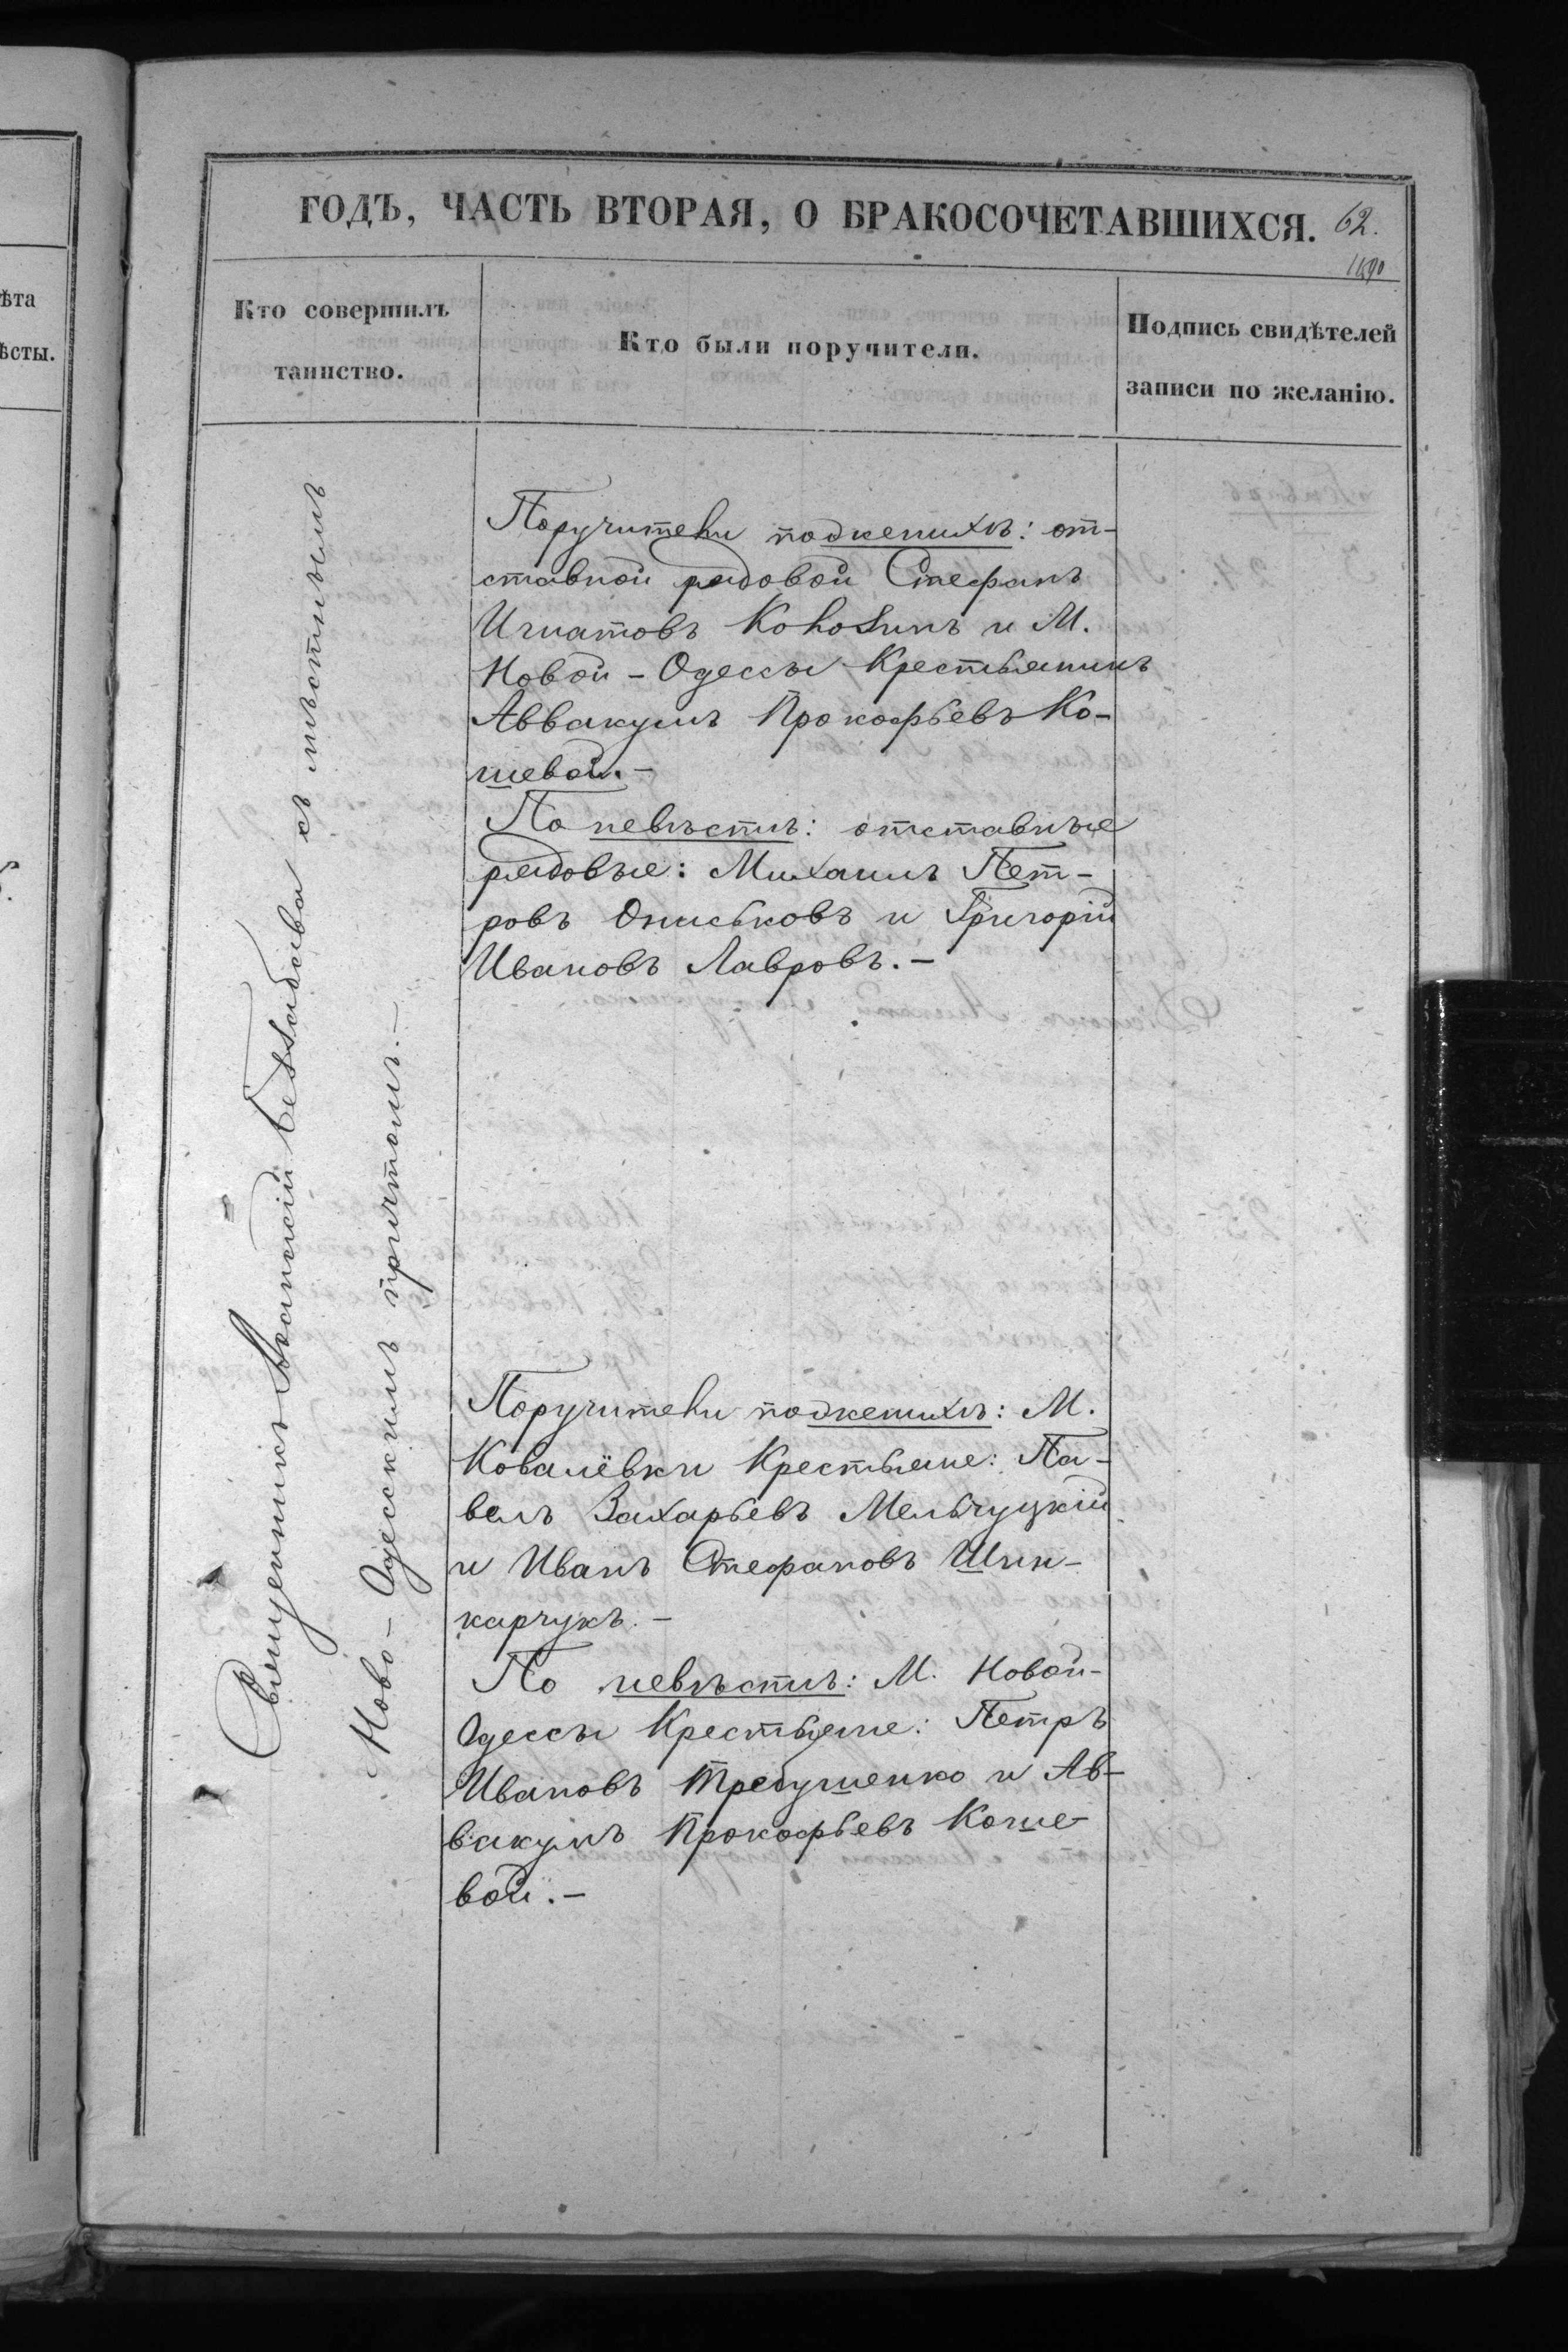 ГОДЪ, ЧАСТЬ ВТОРАЯ, О БРАКОСОЧЕТАВШИХСЯ. 62.
Кто совершилъ
таинство.
Кто были поручители.
Подпись свидѣтелей
записи по желанію.
ѣта
ѣсты.
Священникъ Іоаннъ съ мѣстнымъ
Ново-Одесскимъ причтомъ.-
Поручители по женихѣ: от-
ставной рядовой Стефанъ
Игнатовъ Колосинъ и М.
Новой-Одессы Крестьянинъ
Аввакумъ Прокофьевъ Ко-
шевой.-
По невѣстѣ: отставные
рядовые: Михаилъ Пет-
ровъ Ониськовъ и Григорій
Ивановъ Лавровъ.-
Поручители по женихѣ: М.
Ковалёвки Крестьяне: Па-
велъ Захарьевъ Мельчуцкій
и Иванъ Стефановъ Шин-
карчукъ.-
По невѣстѣ: М. Новой-
Одессы Крестьяне: Петръ
Ивановъ Требушенко и Ав-
вакумъ Прокофьевъ Коше-
вой.-